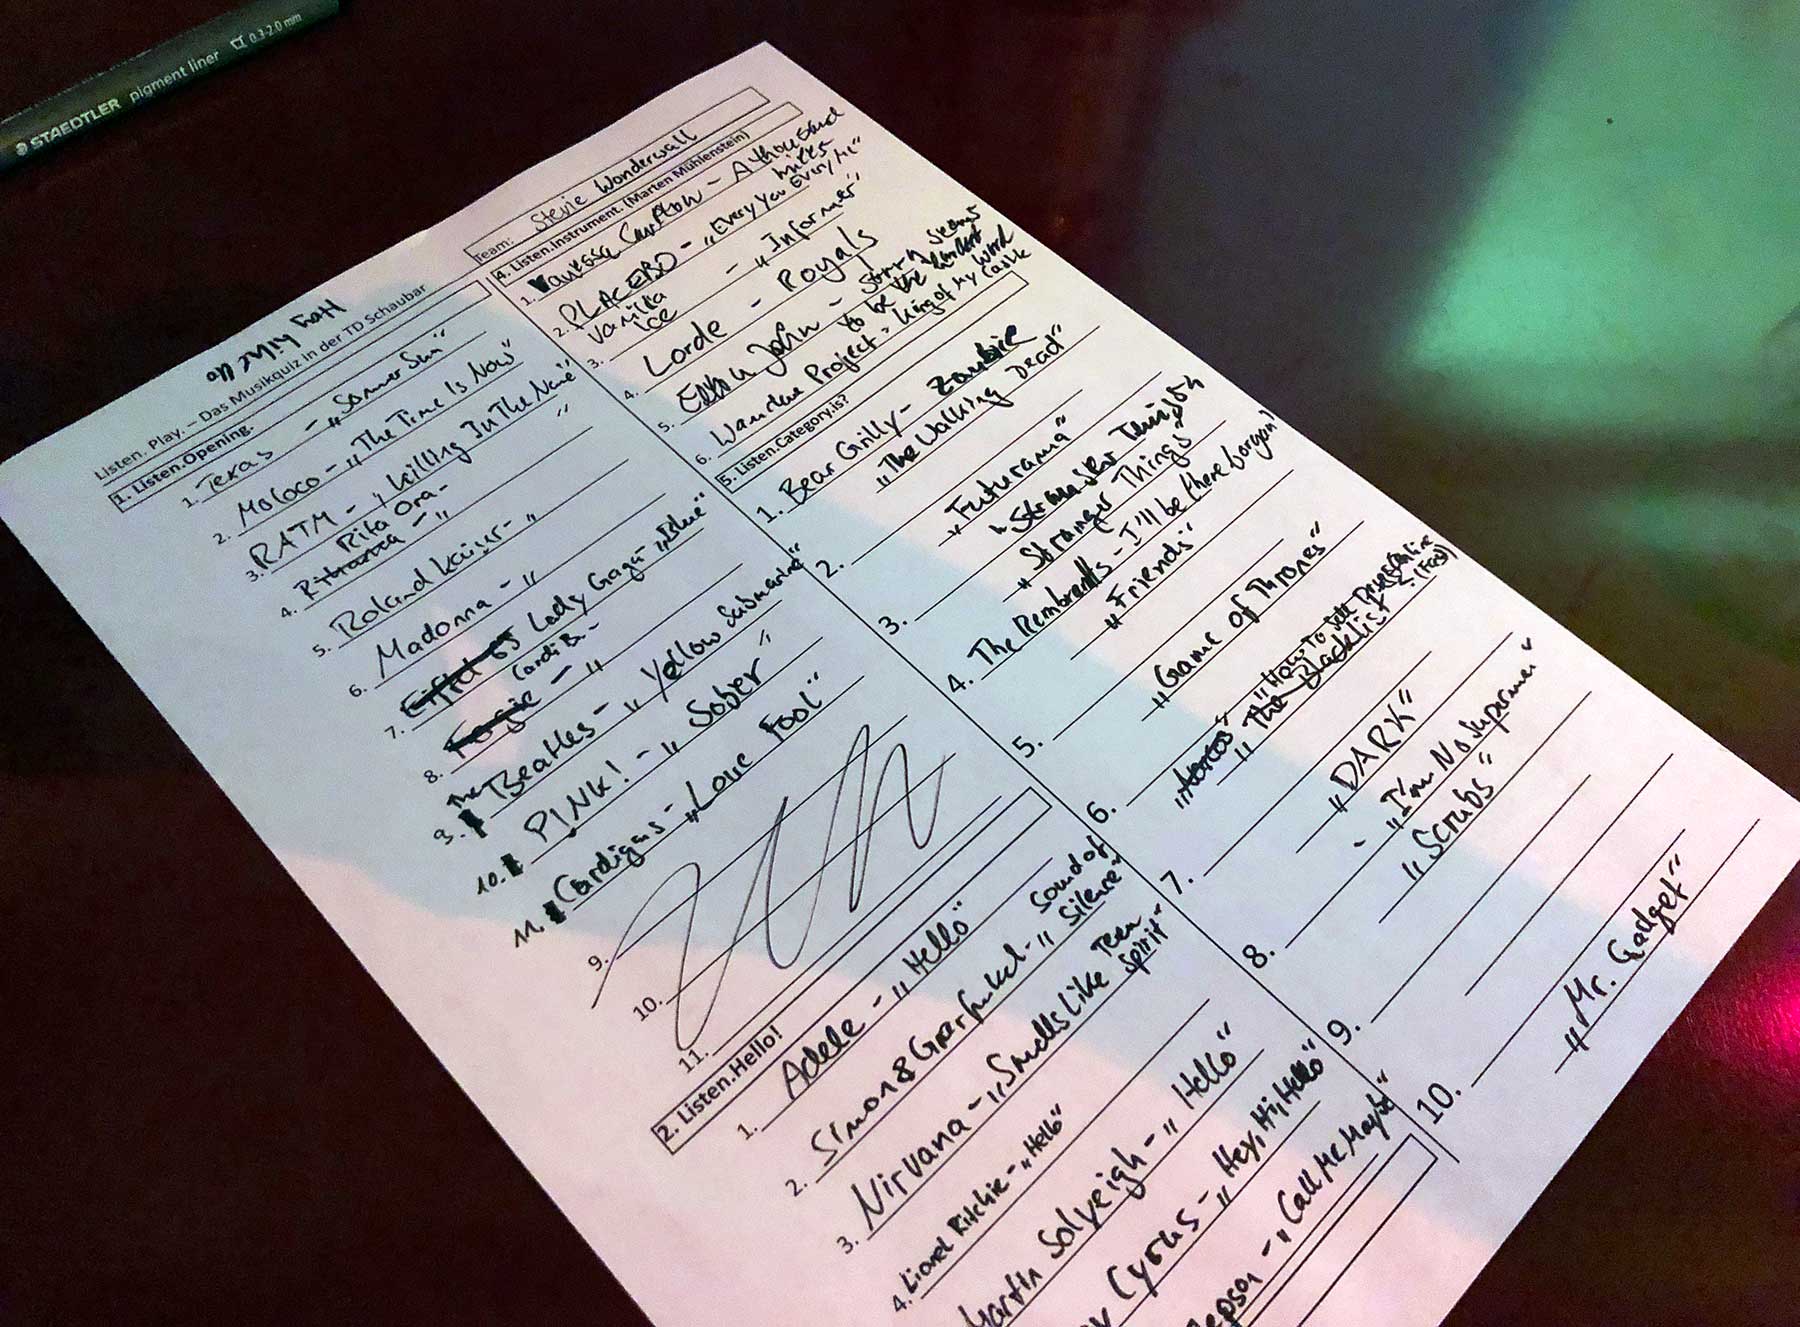 STAEDTLER pigment liner 0.3-2.0 mm
Team: Stevie Wonderwall
Listen. Play. – Das Musikquiz in der TD Schaubar
1. Listen.Opening.
1. Texas - „Sommer Sun“
2. Moloco - „The Time Is Now“
3. RATM - „Killing In The Name“
Rita Ora -
4. - „ “
5. Roland - „
6. Madonna - „
7. Eiffel 65 Lady Gaga - „Blue“
Cardi B. -
8. Fergie - „
9. The Beatles - „Yellow Submarine“
10. P!NK! - „Sober“
11. Cardigans - „Love Fool“
9.
10.
11.
2. Listen.Hello!
1. Adele - „Hello“
2. Simon & Garfunkel - „Sound of Silence“
3. Nirvana - „Smells Like Teen Spirit“
4. Lionel Ritchie - „Hello“
Martin Solveigh - „Hello“
Cyrus - „Hey, Hi, Hello“
Jepson - „Call Me Maybe“
4. Listen.Instrument. (Marten Mühlenstein)
1. Vanessa Carlton - A thousand miles
2. PLACEBO - „Every You Every Me“
3. Vanilla Ice - „Informer“
4. Lorde - Royals
5. Elton John - Sorry seems to be the hardest word
6. Wamdue Project - King of my Castle
5. Listen.Category.is?
1. Bear Grilly - Zombie
„The Walking Dead“
2. „Futurama“
3. „Stranger
„Stranger Things“
4. The Rembrandts - I'll be there for you
„Friends“
5. „Game of Thrones“
6. „How To Sell Drugs Online (Fast)
„The Blacklist“
7. „DARK“
8. - „I'm No Superman“
„Scrubs“
9.
10. „Mr. Gadget“